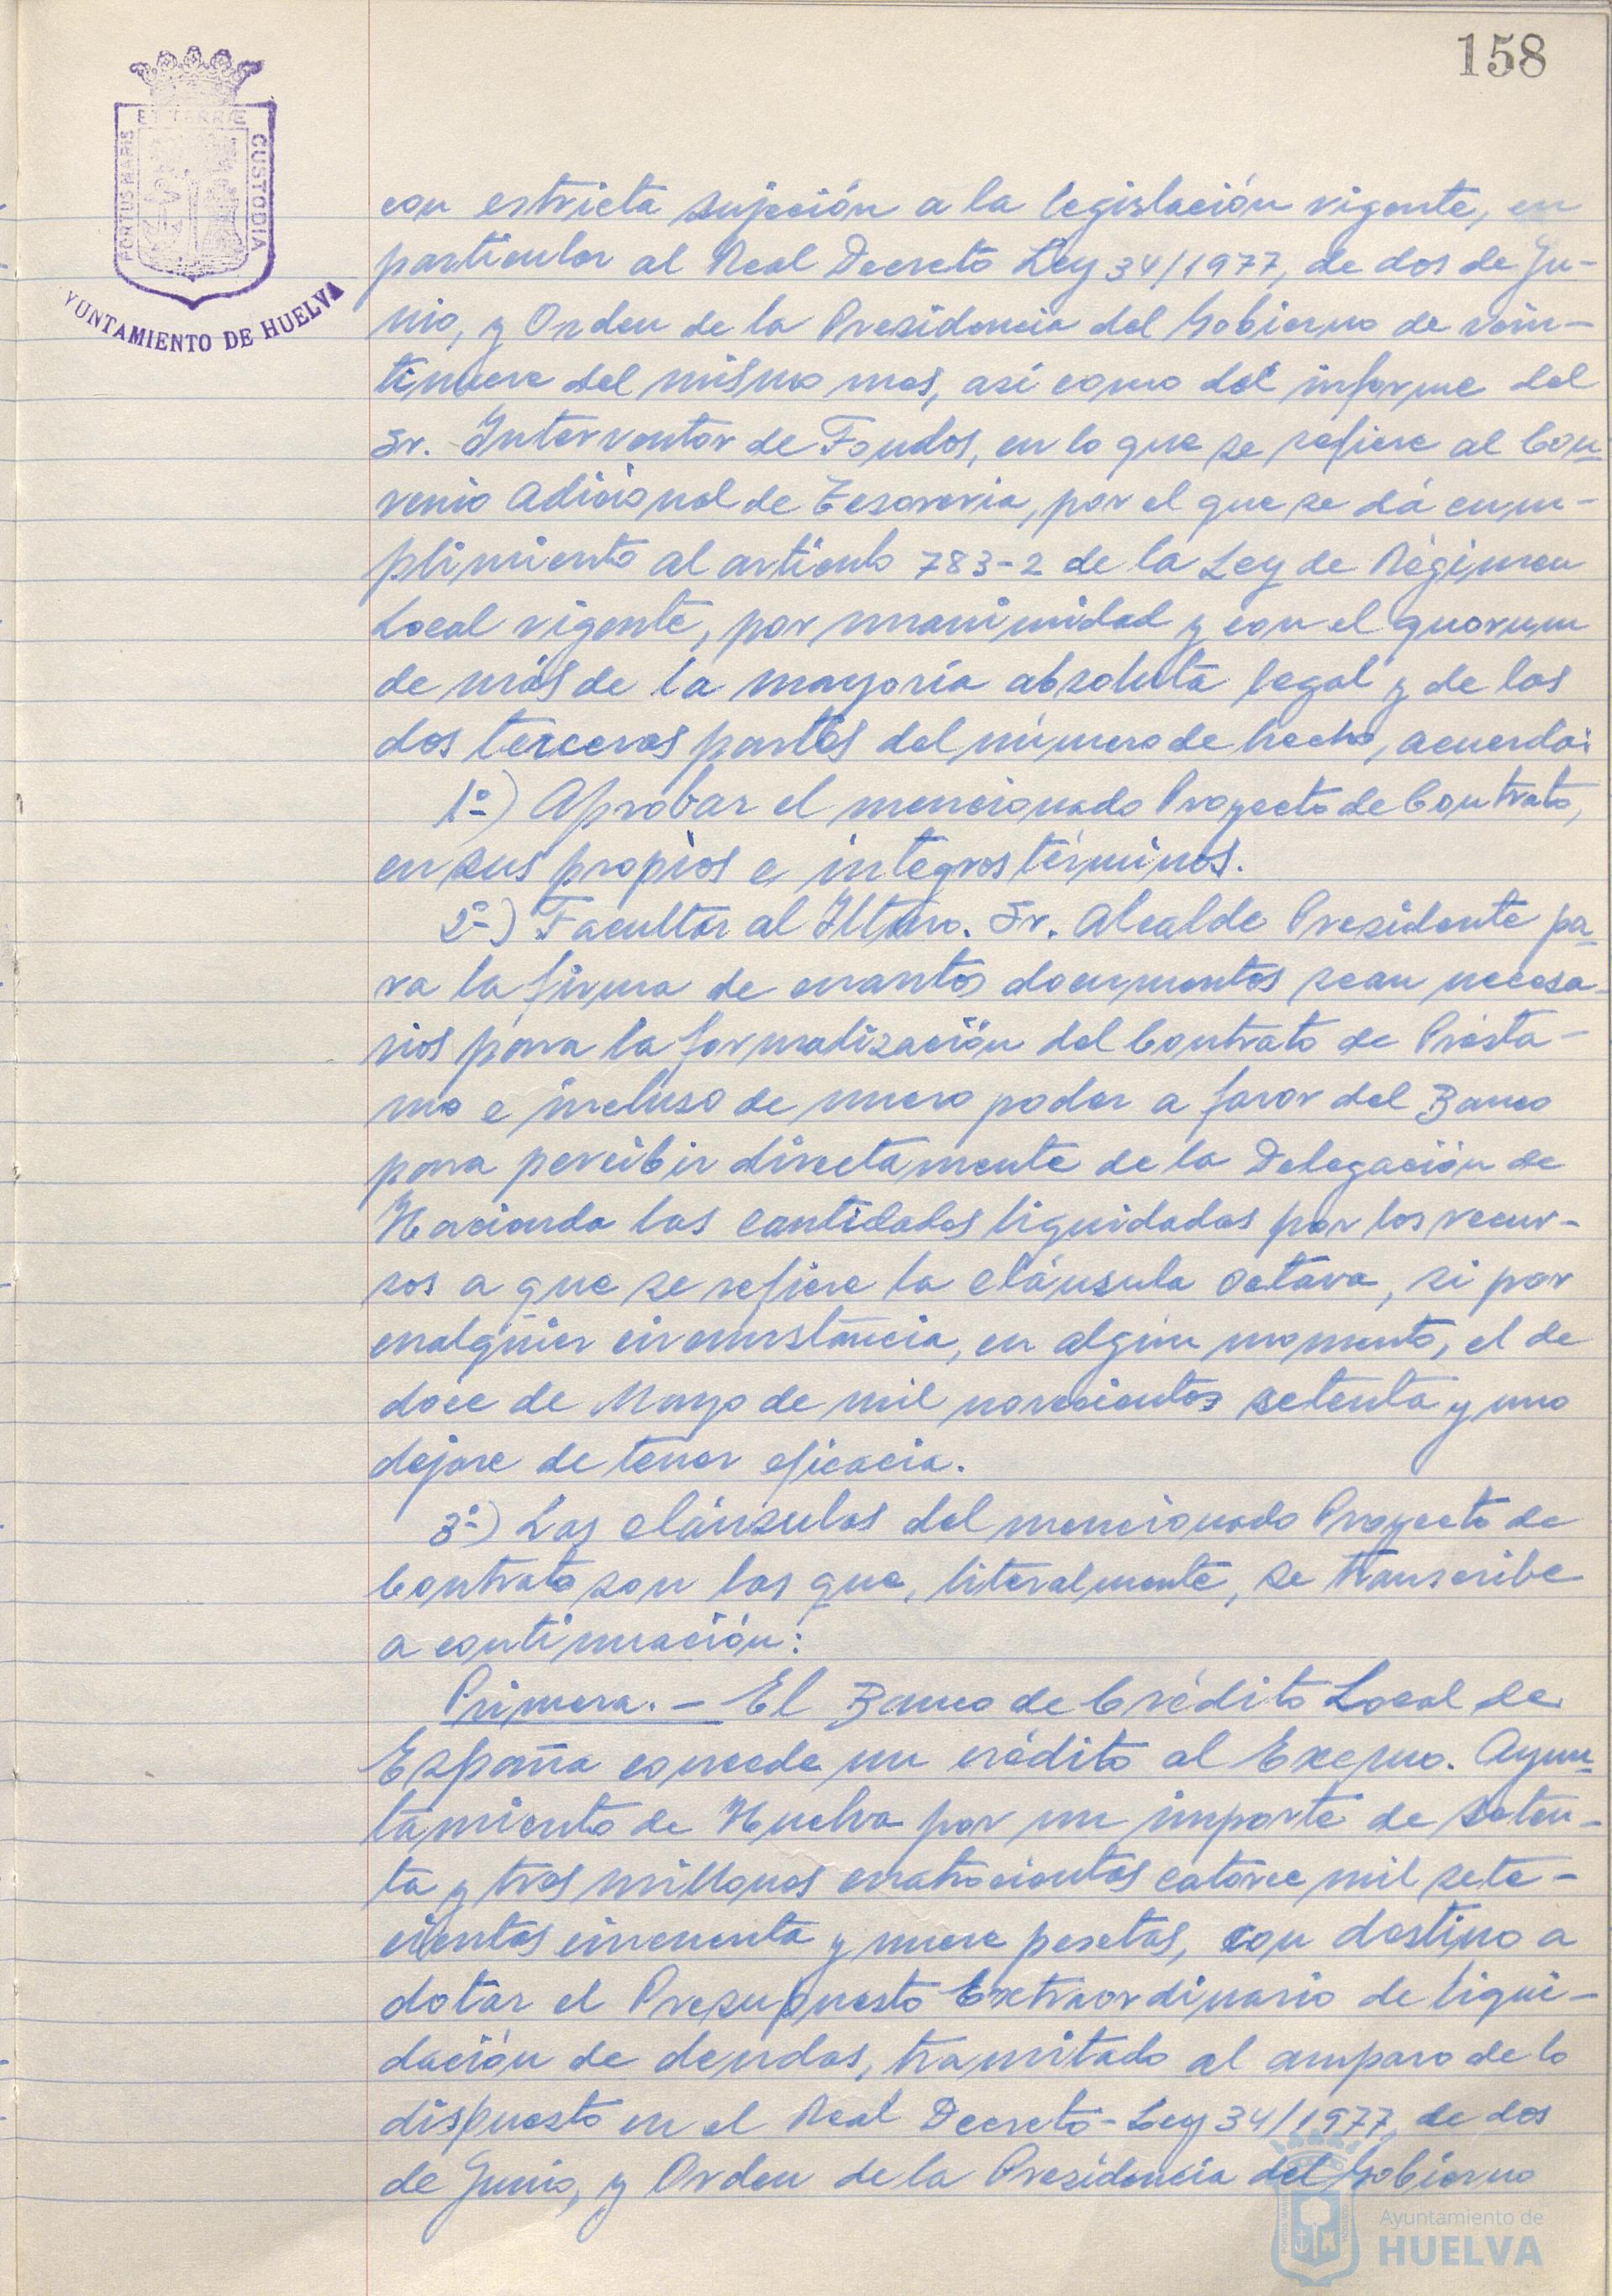 158
ET TERRÆ
PORTUS MARIS
CUSTODIA
YUNTAMIENTO DE HUELVA
con estricta sujeción a la legislación vigente, en
particular al Real Decreto Ley 34/1977, de dos de Ju-
nio, y Orden de la Presidencia del Gobierno de vein-
tinueve del mismo mes, así como del informe del
Sr. Interventor de Fondos, en lo que se refiere al Con-
venio Adicional de Tesorería, por el que se dá cum-
plimiento al artículo 783-2 de la Ley de Régimen
Local vigente, por unanimidad y con el quorum
de más de la mayoría absoluta legal y de las
dos terceras partes del número de hecho, acuerda:
1º) Aprobar el mencionado Proyecto de Contrato,
en sus propios e integros términos.
2º) Facultar al Iltmo. Sr. Alcalde Presidente pa-
ra la firma de cuantos documentos sean necesa-
rios para la formalización del Contrato de Présta-
mo e incluso de nuevo poder a favor del Banco
para percibir directamente de la Delegación de
Hacienda las cantidades liquidadas por los recur-
sos a que se refiere la cláusula octava, si por
cualquier circunstancia, en algún momento, el de
doce de Mayo de mil novecientos setenta y uno
dejare de tener eficacia.
3º) Las cláusulas del mencionado Proyecto de
Contrato son las que, literalmente, se transcribe
a continuación:
Primera.- El Banco de Crédito Local de
España concede un crédito al Excmo. Ayun-
tamiento de Huelva por un importe de seten-
ta y tres millones cuatrocientas catorce mil sete-
cientas cincuenta y nueve pesetas, con destino a
dotar el Presupuesto Extraordinario de liqui-
dación de deudas, tramitado al amparo de lo
dispuesto en el Real Decreto-Ley 34/1977, de dos
de Junio, y Orden de la Presidencia del Gobierno
Ayuntamiento de
HUELVA